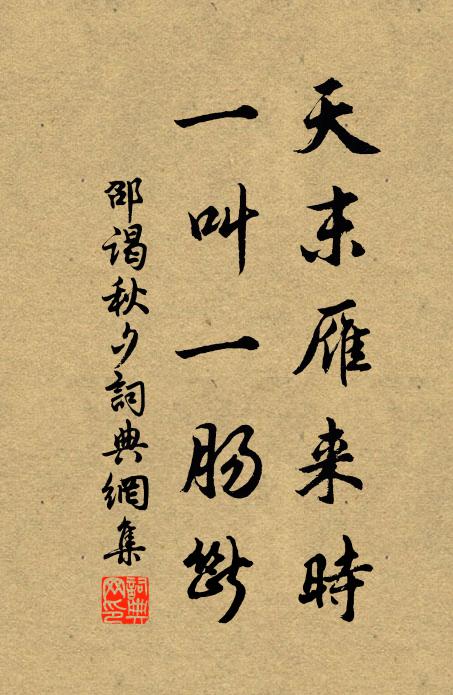 天末雁来時
一叫一肠斷
邵谒秋夕詞典網集
詞典网印